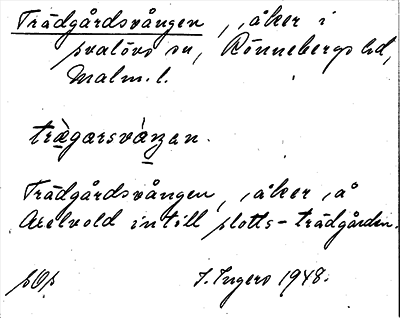 Trädgårdsvången, åker i
Svalövs sn, Rönnebergs hd,
Malm. l.
trägarsvàŋen.
Trädgårdsvången, åker å
Axelvold intill slotts-trädgården.
pOp I. Ingers 1948.